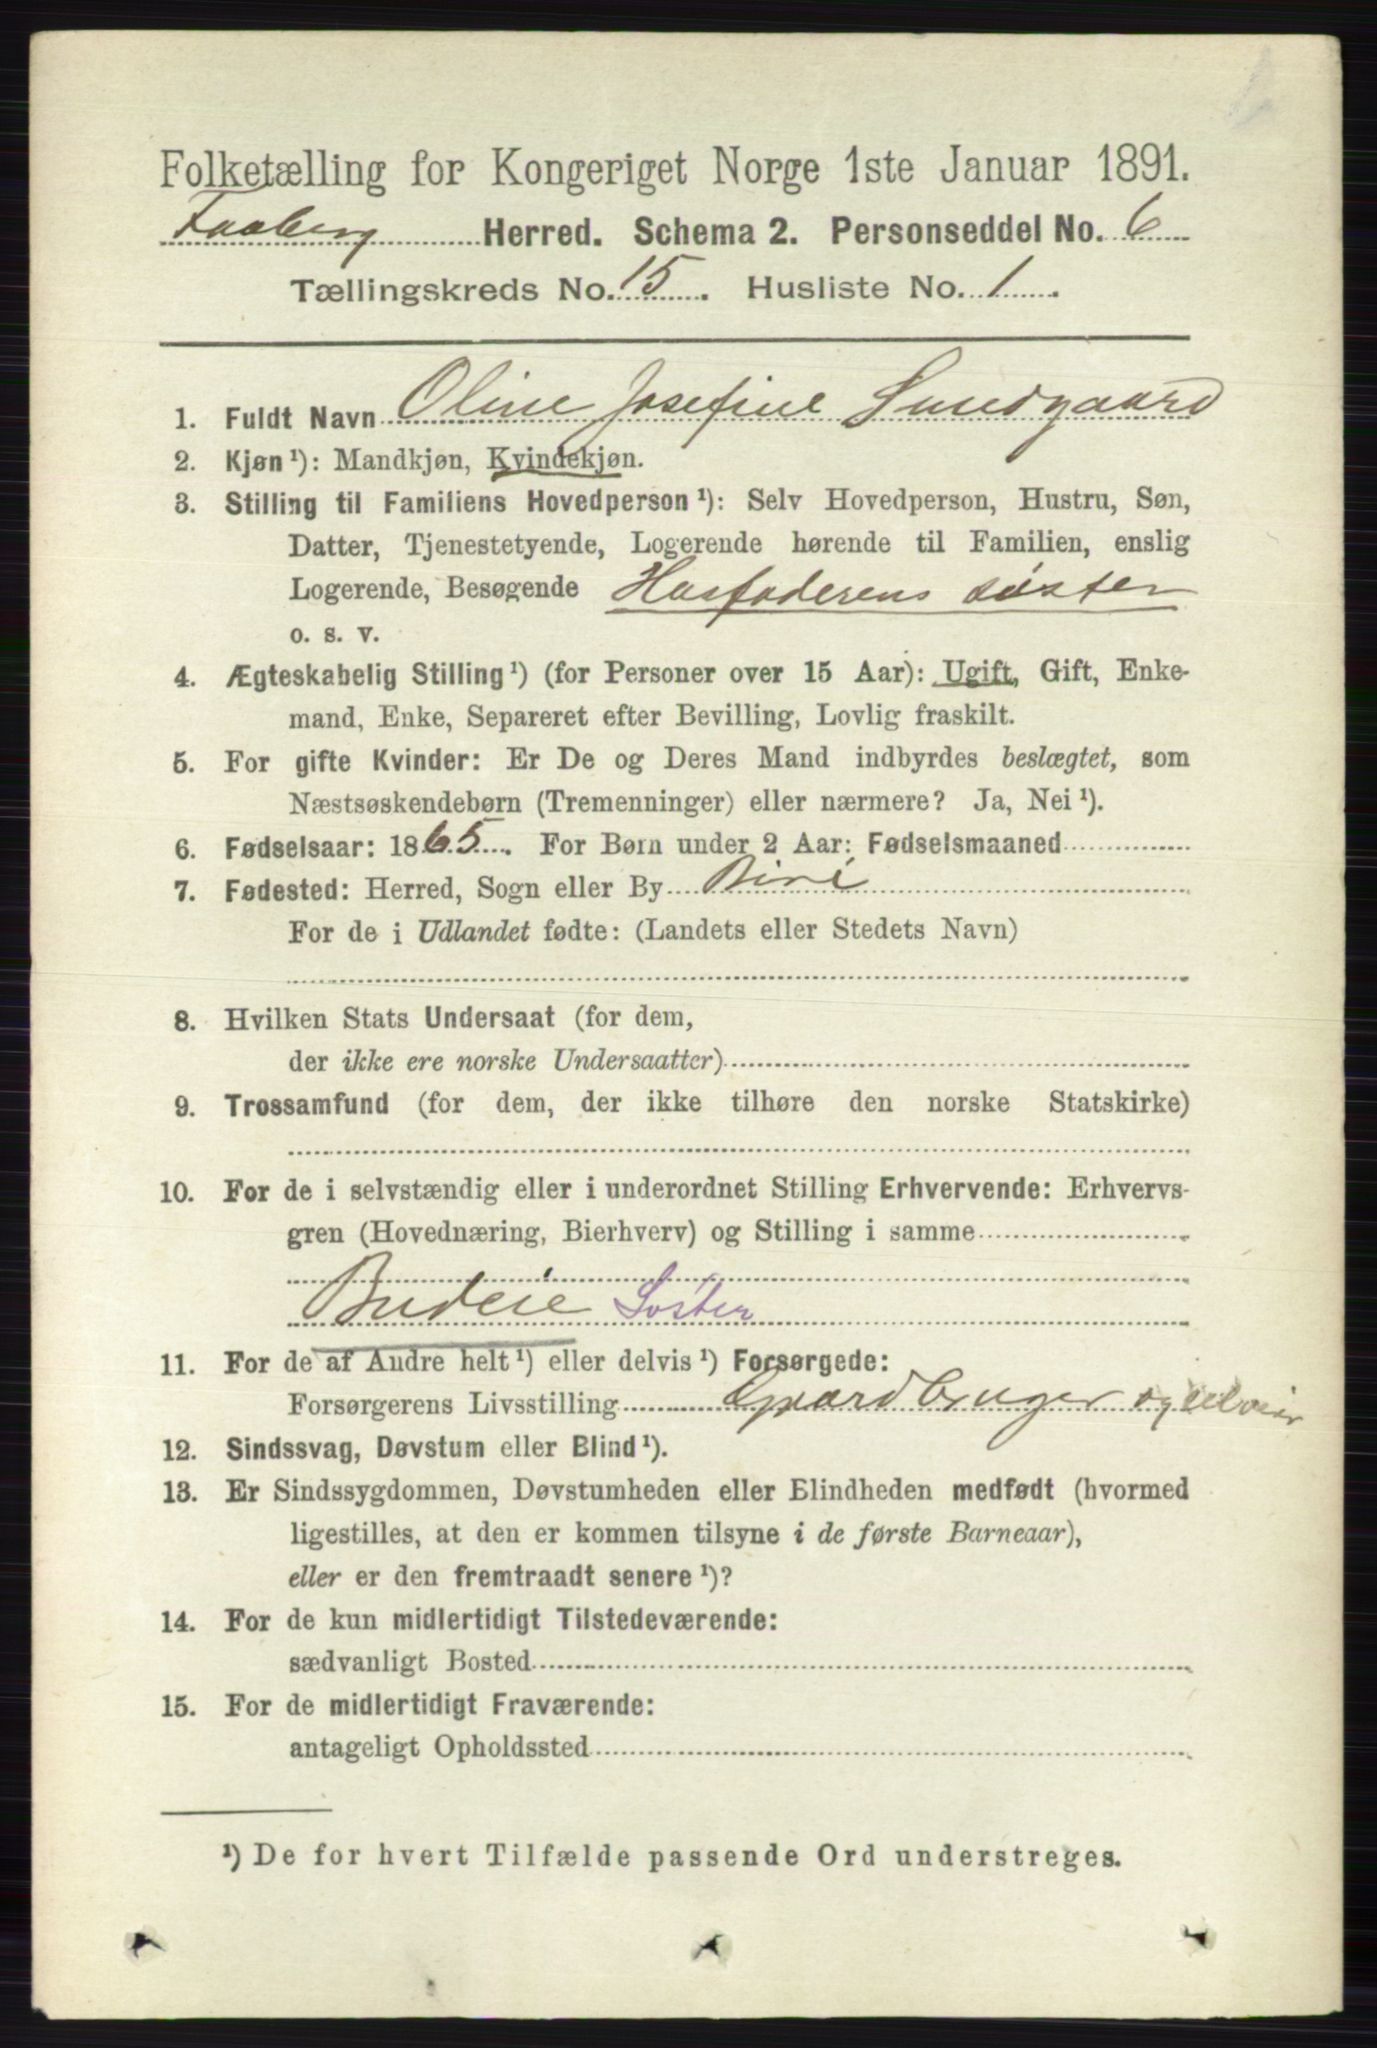 Folketælling for Kongeriget Norge 1ste Januar 1891.
Faaberg Herred. Schema 2. Personseddel No. 6
Tællingskreds No. 15. Husliste No. 1.
1. Fuldt Navn Oline Josefine Sundgaard
2. Kjøn ¹): Mandkjøn, Kvindekjøn.
3. Stilling til Familiens Hovedperson ¹): Selv Hovedperson, Hustru, Søn,
Datter, Tjenestetyende, Logerende hørende til Familien, enslig
Logerende, Besøgende Husfaderens søster
o. s. v.
4. Ægteskabelig Stilling ¹) (for Personer over 15 Aar): Ugift, Gift, Enke-
mand, Enke, Separeret efter Bevilling, Lovlig fraskilt.
5. For gifte Kvinder: Er De og Deres Mand indbyrdes beslægtet, som
Næstsøskendebørn (Tremenninger) eller nærmere? Ja, Nei ¹).
6. Fødselsaar: 1865. For Børn under 2 Aar: Fødselsmaaned
7. Fødested: Herred, Sogn eller By Biri
For de i Udlandet fødte: (Landets eller Stedets Navn)
8. Hvilken Stats Undersaat (for dem,
der ikke ere norske Undersaatter)
9. Trossamfund (for dem, der ikke tilhøre den norske Statskirke)
10. For de i selvstændig eller i underordnet Stilling Erhvervende: Erhvervs-
gren (Hovednæring, Bierhverv) og Stilling i samme
Budeie Søster
11. For de af Andre helt ¹) eller delvis ¹) Forsørgede:
Forsørgerens Livsstilling Gaardbruger og
12. Sindssvag, Døvstum eller Blind ¹).
13. Er Sindssygdommen, Døvstumheden eller Blindheden medfødt (hvormed
ligestilles, at den er kommen tilsyne i de første Barneaar),
eller er den fremtraadt senere ¹)?
14. For de kun midlertidigt Tilstedeværende:
sædvanligt Bosted
15. For de midlertidigt Fraværende:
antageligt Opholdssted
¹) De for hvert Tilfælde passende Ord understreges.